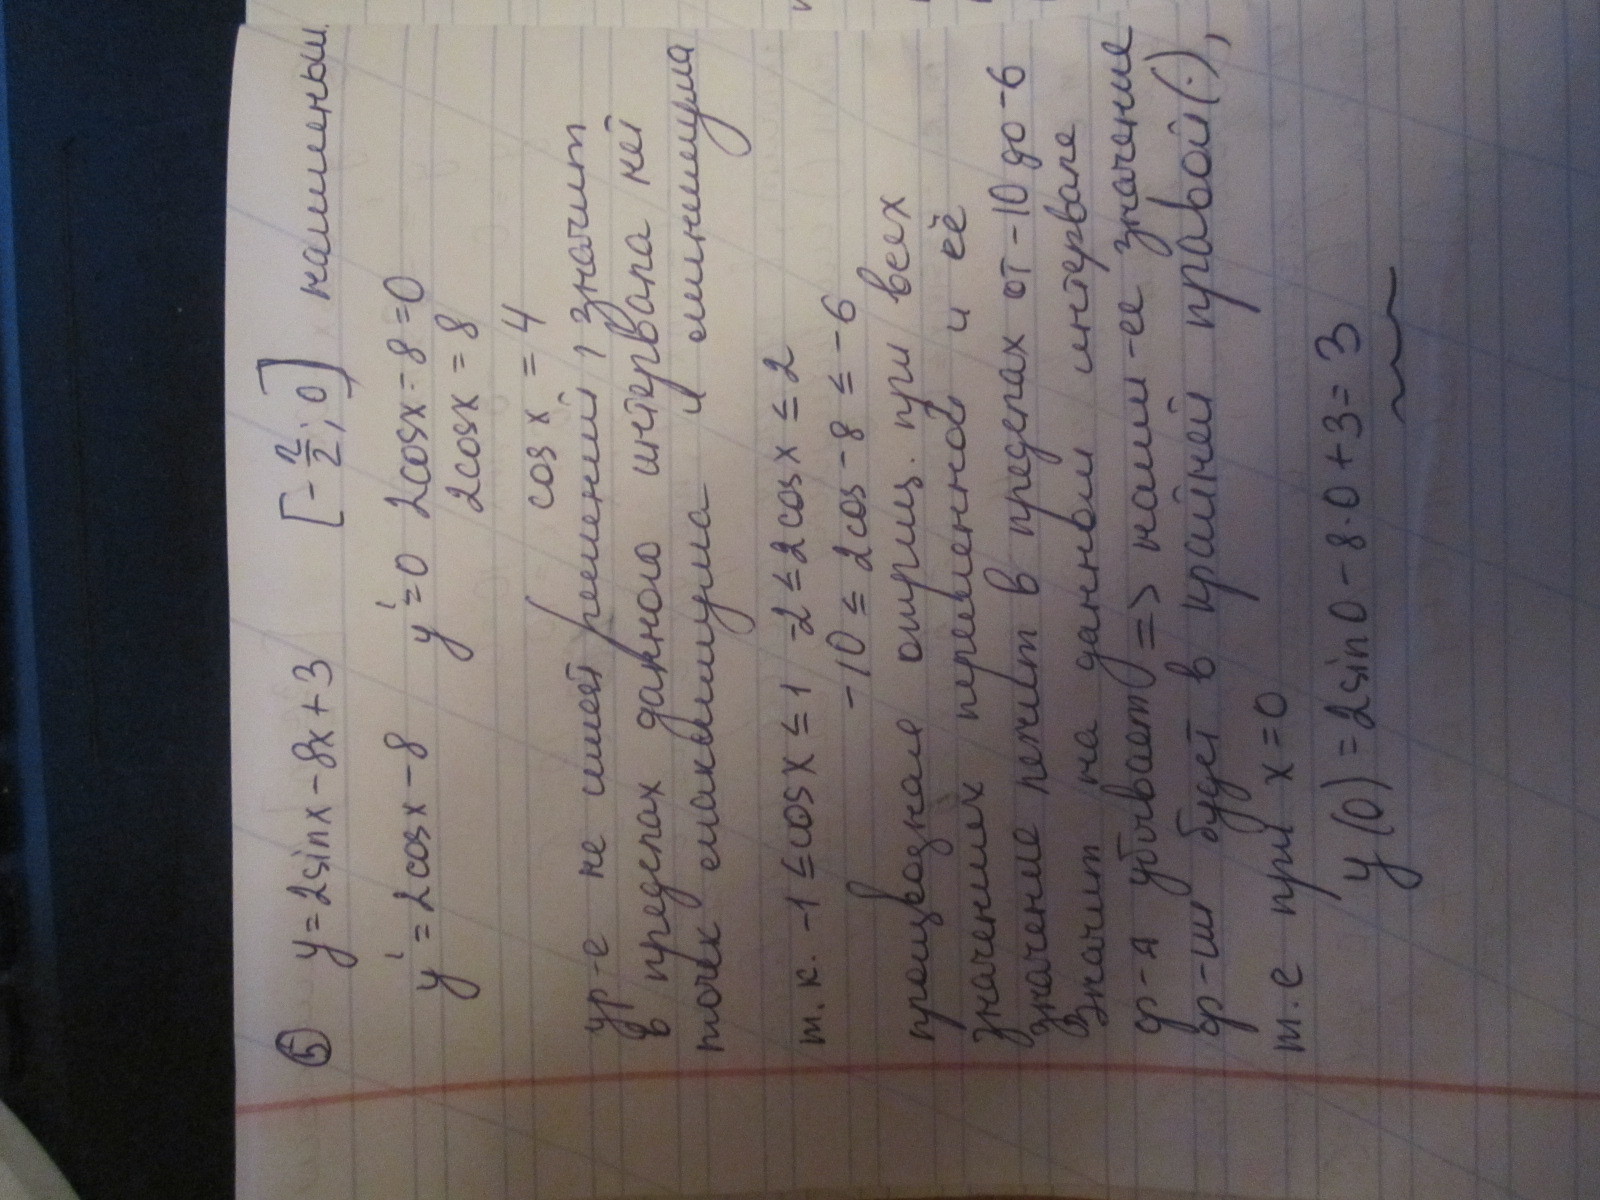 ⑤ y = 2sinx - 8x + 3 [-π/2; 0] наименьш.
y' = 2cosx - 8 y' = 0 2cosx - 8 = 0
2cosx = 8
cos x = 4
ур-е не имеет решений, значит
в пределах данного интервала нет
точек максимума и минимума
т.к. -1 ≤ cosx ≤ 1 -2 ≤ 2cosx ≤ 2
-10 ≤ 2cos - 8 ≤ -6
производная отриц. при всех
значениях переменной и её
значение лежит в пределах от -10 до -6
Значит на данном интервале
ф-я убывает => наим-ее значение
ф-ии будет в крайней правой (·),
т.е при x = 0
y(0) = 2sin0 - 8·0 + 3 = 3